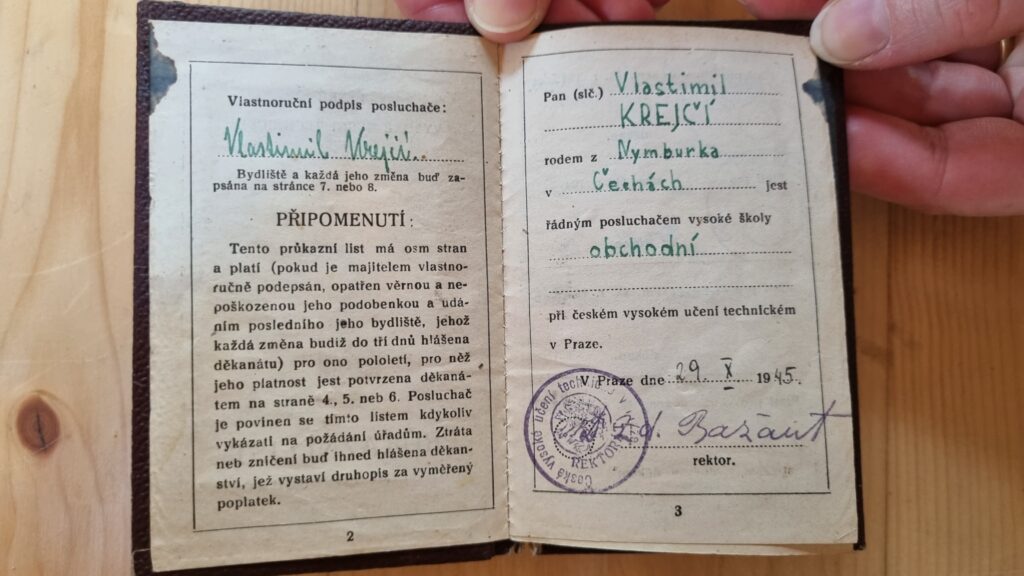 Vlastnoruční podpis posluchače:
Vlastimil Krejčí.
Bydliště a každá jeho změna buď za-
psána na stránce 7. nebo 8.
PŘIPOMENUTÍ:
Tento průkazní list má osm stran
a platí (pokud je majitelem vlastno-
ručně podepsán, opatřen věrnou a ne-
poškozenou jeho podobenkou a udá-
ním posledního jeho bydliště, jehož
každá změna budiž do tří dnů hlášena
děkanátu) pro ono pololetí, pro něž
jeho platnost jest potvrzena děkaná-
tem na straně 4., 5. neb 6. Posluchač
je povinen se tímto listem kdykoliv
vykázati na požádání úřadům. Ztráta
neb zničení buď ihned hlášena děkan-
ství, jež vystaví druhopis za vyměřený
poplatek.
2
Pan (slč.) Vlastimil
KREJČÍ
rodem z Nymburka
v Čechách jest
řádným posluchačem vysoké školy
obchodní
při českém vysokém učení technickém
v Praze.
V Praze dne 29. X 1945.
Bažant
rektor.
České vysoké učení technické v
REKTORÁT
3